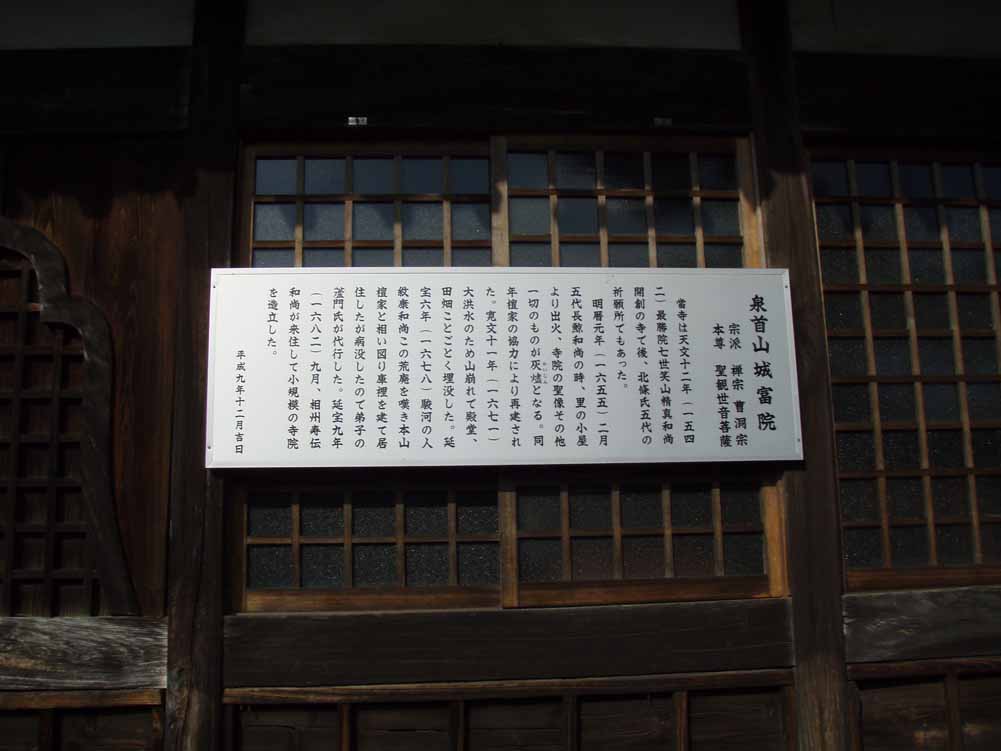 泉首山 城富院
宗派 禅宗 曹洞宗
本尊 聖観世音菩薩
當寺は天文十二年(一五四
二)最勝院七世笑山精真和尚
開創の寺て後、北條氏五代の
祈願所てもあった。
明暦元年(一六五五)二月
五代長勲和尚の時、里の小屋
より出火、寺院の聖像その他
一切のものが灰燼となる。同
年檀家の協力により再建され
た。寛文十一年(一六七一)
大洪水のため山崩れて殿堂、
田畑ことごとく埋没した。延
宝六年(一六七八)駿河の人
紋康和尚この荒廃を嘆き本山
檀家と相い図り庫裡を建て居
住したが病没したので弟子の
蘆門氏が代行した。延宝九年
(一六八二)九月、相州寿伝
和尚が来住して小規模の寺院
を造立した。
平成九年十二月吉日